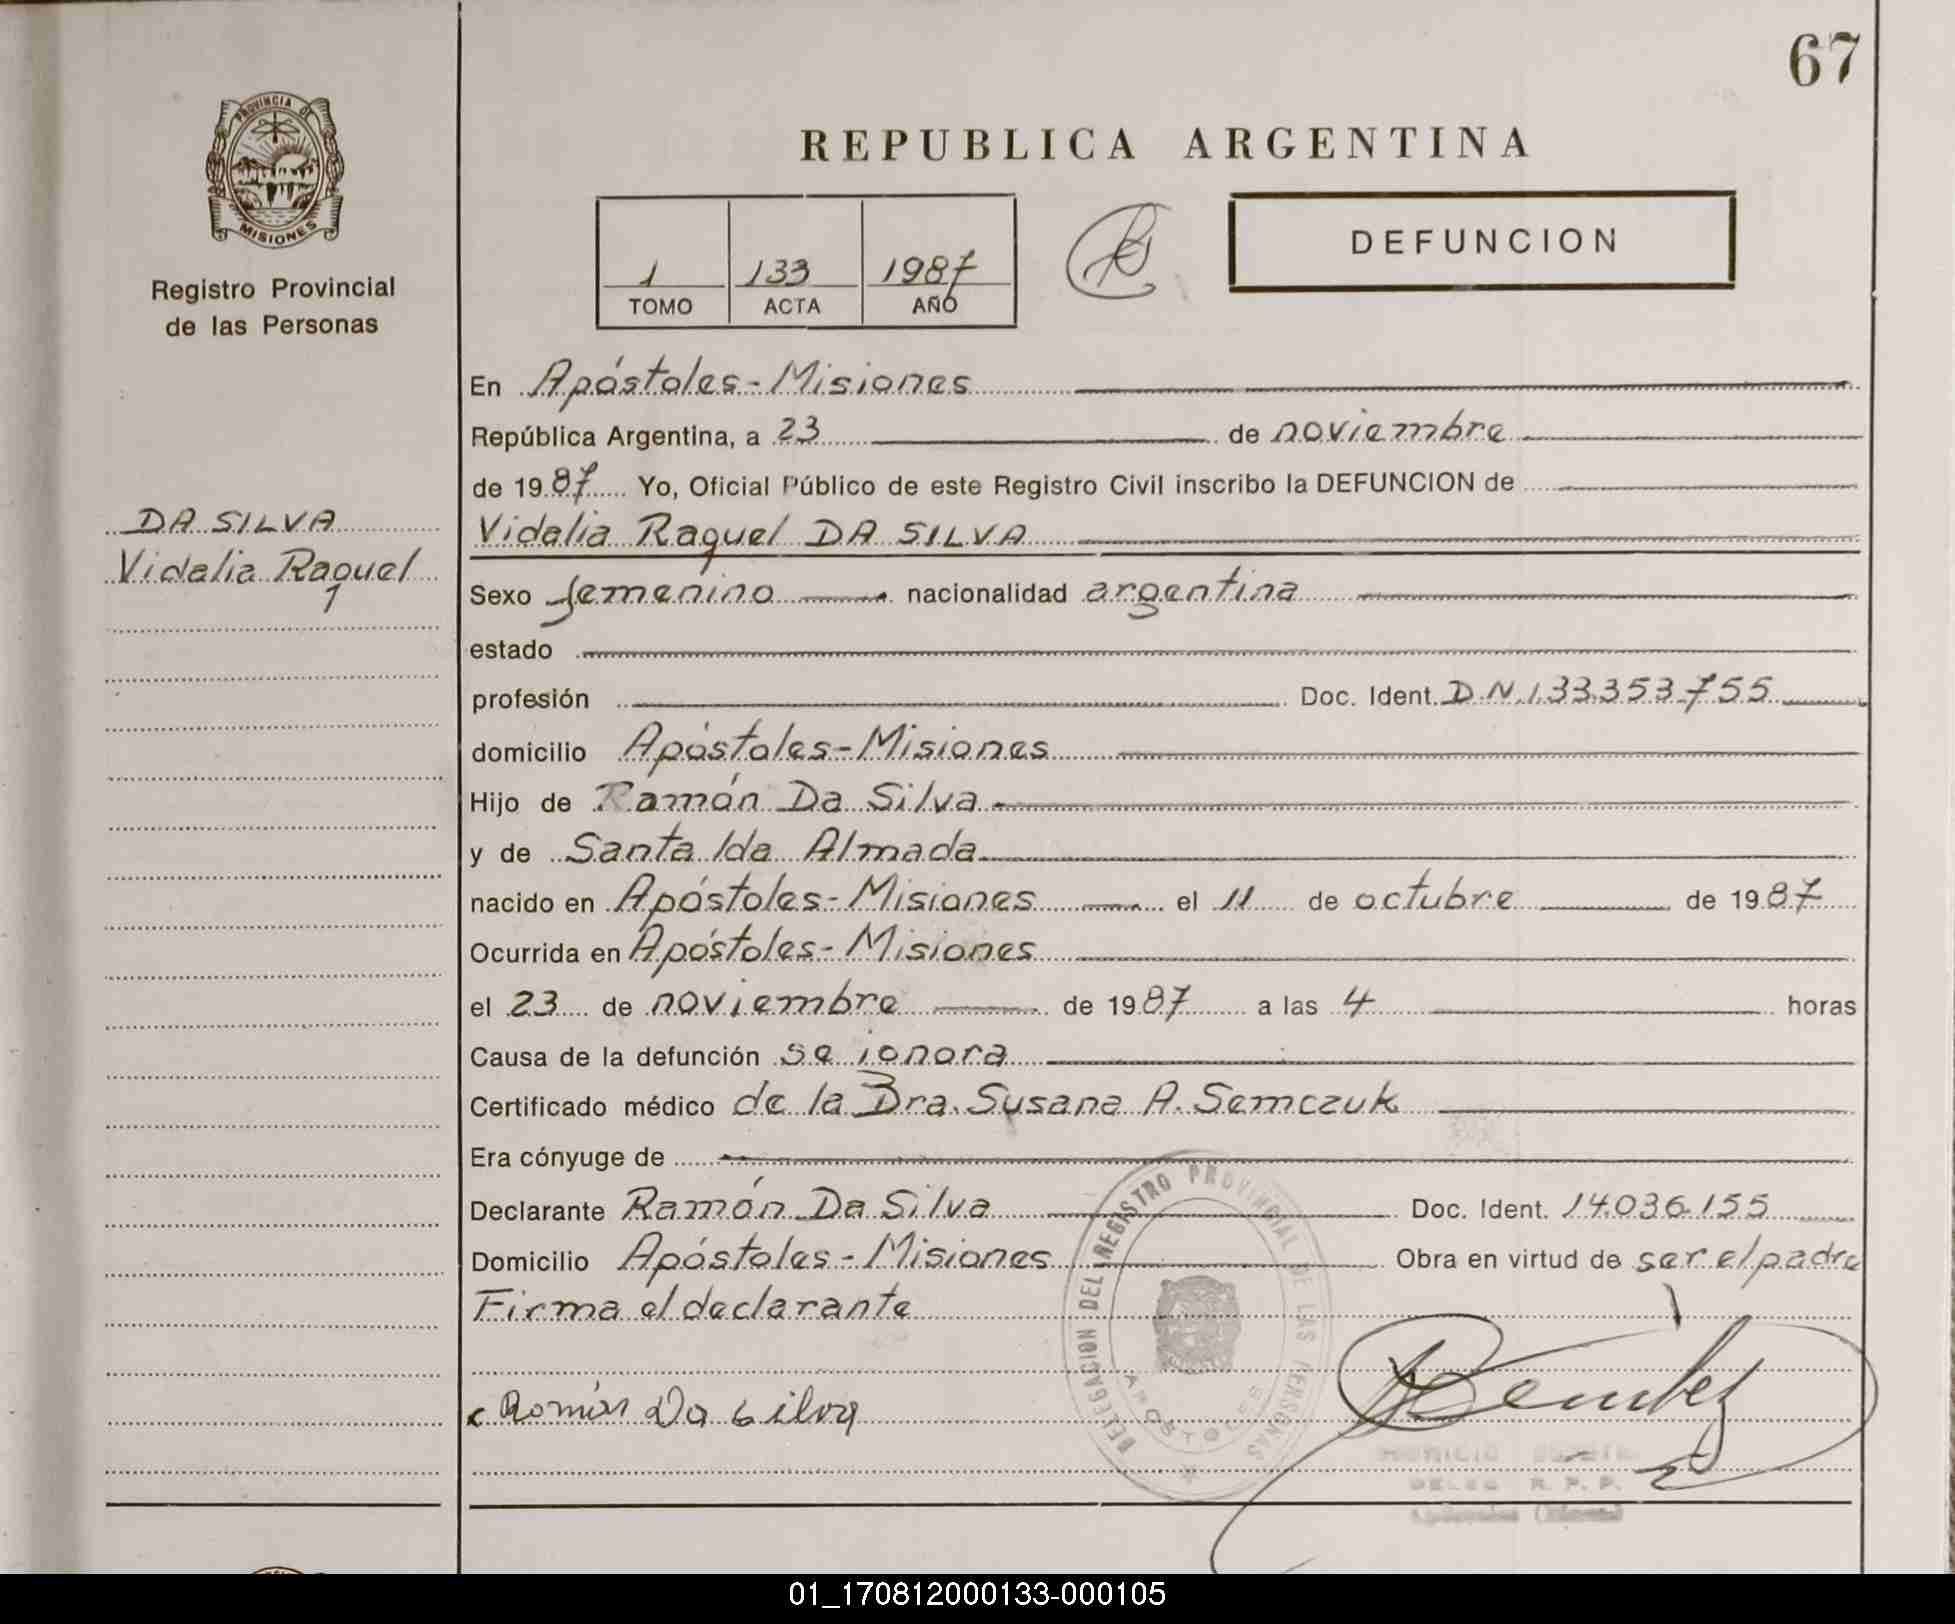 67
PROVINCIA DE
MISIONES
Registro Provincial
de las Personas
REPUBLICA ARGENTINA
1 133 1987
TOMO ACTA AÑO
DEFUNCION
En Apóstoles-Misiones
República Argentina, a 23 de noviembre
de 1987 Yo, Oficial Público de este Registro Civil inscribo la DEFUNCION de
DA SILVA
Vidalia Raquel
Vidalia Raquel DA SILVA
Sexo femenino nacionalidad argentina
estado
profesión Doc. Ident. D.N.I.33.353.755
domicilio Apóstoles-Misiones
Hijo de Ramón Da Silva
y de Santa Ida Almada
nacido en Apóstoles-Misiones el 11 de octubre de 1987
Ocurrida en Apóstoles-Misiones
el 23 de noviembre de 1987 a las 4 horas
Causa de la defunción se ignora
Certificado médico de la Dra. Susana A. Semczuk
Era cónyuge de
Declarante Ramón Da Silva Doc. Ident. 14.036.155
Domicilio Apóstoles-Misiones Obra en virtud de ser el padre
Firma el declarante
Román Da Silva
DELEGACION DEL REGISTRO PROVINCIAL DE LAS PERSONAS
APOSTOLES
DELEG R. P. P.
01_170812000133-000105